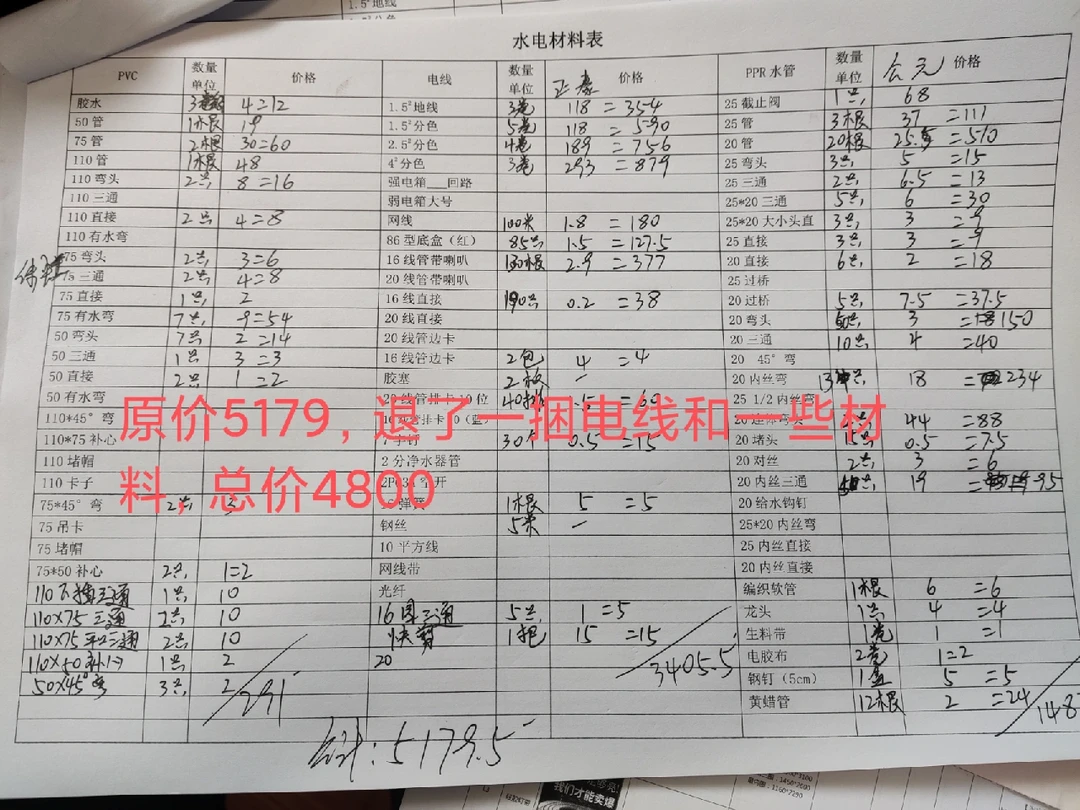 水电材料表
PVC 数量单位 价格 电线 数量单位 正泰 价格 PPR 水管 数量单位 公元 价格
胶水 3 4=12 1.5²地线 3卷 118 =354 25 截止阀 1只 68
50 管 1根 19 1.5²分色 5卷 118 =590 25 管 3根 37 =111
75 管 2根 30=60 2.5²分色 4卷 189 =756 20 管 20根 25.5 =510
110 管 1根 48 4²分色 3卷 293 =879 25 弯头 3只 5 =15
110 弯头 2只 8=16 强电箱___回路 25 三通 2只 6.5 =13
110 三通 弱电箱大号 25*20 三通 5只 6 =30
110 直接 2只 4=8 网线 100米 1.8 =180 25*20 大小头直 3只 3 =9
110 有水弯 86 型底盒（红） 85只 1.5 =127.5 25 直接 3只 3 =9
75 弯头 2只 3=6 16 线管带喇叭 130根 2.9 =377 20 直接 6只 2 =18
75 三通 2只 4=8 20 线管带喇叭 25 过桥
75 直接 1只 2 16 线直接 190只 0.2 =38 20 过桥 5只 7.5 =37.5
75 有水弯 7只 9=54 20 线直接 20 弯头 3 =150
50 弯头 7只 2=14 20 线管边卡 20 三通 10只 4 =40
50 三通 1只 3=3 16 线管边卡 2包 4 =4 20 45°弯
50 直接 2只 1=2 胶塞 2 20 内丝弯 13只 18 =234
50 有水弯 20 线管排卡 10 位 40 1.5 =60 25 1/2 内丝弯
110*45°弯 20 连体弯头 44 =88
110*75 补心 30个 0.5 =15 20 堵头 15只 0.5 =7.5
110 堵帽 2 分净水器管 20 对丝 2只 3 =6
110 卡子 20 内丝三通 19 =95
75*45°弯 2只 3 弹簧 1根 5 =5 20 给水钩钉
75 吊卡 钢丝 5米 25*20 内丝弯
75 堵帽 10 平方线 25 内丝直接
75*50 补心 2只 1=2 网线带 20 内丝直接
1只 10 光纤 编织软管 1根 6 =6
110×75三通 2只 10 16 三通 5只 1=5 龙头 1只 4 =4
110×75 三通 2只 10 快剪 1把 15 =15 生料带 1卷 1 =1
110×50补心 1只 2 20 电胶布 2卷 1=2
50×45°弯 3只 2 钢钉（5cm） 1盒 5 =5
黄蜡管 12根 2 =24
291
3405.5
148
合计:5179.5
原价5179，退了一捆电线和一些材
料，总价4800
我们才能卖爆